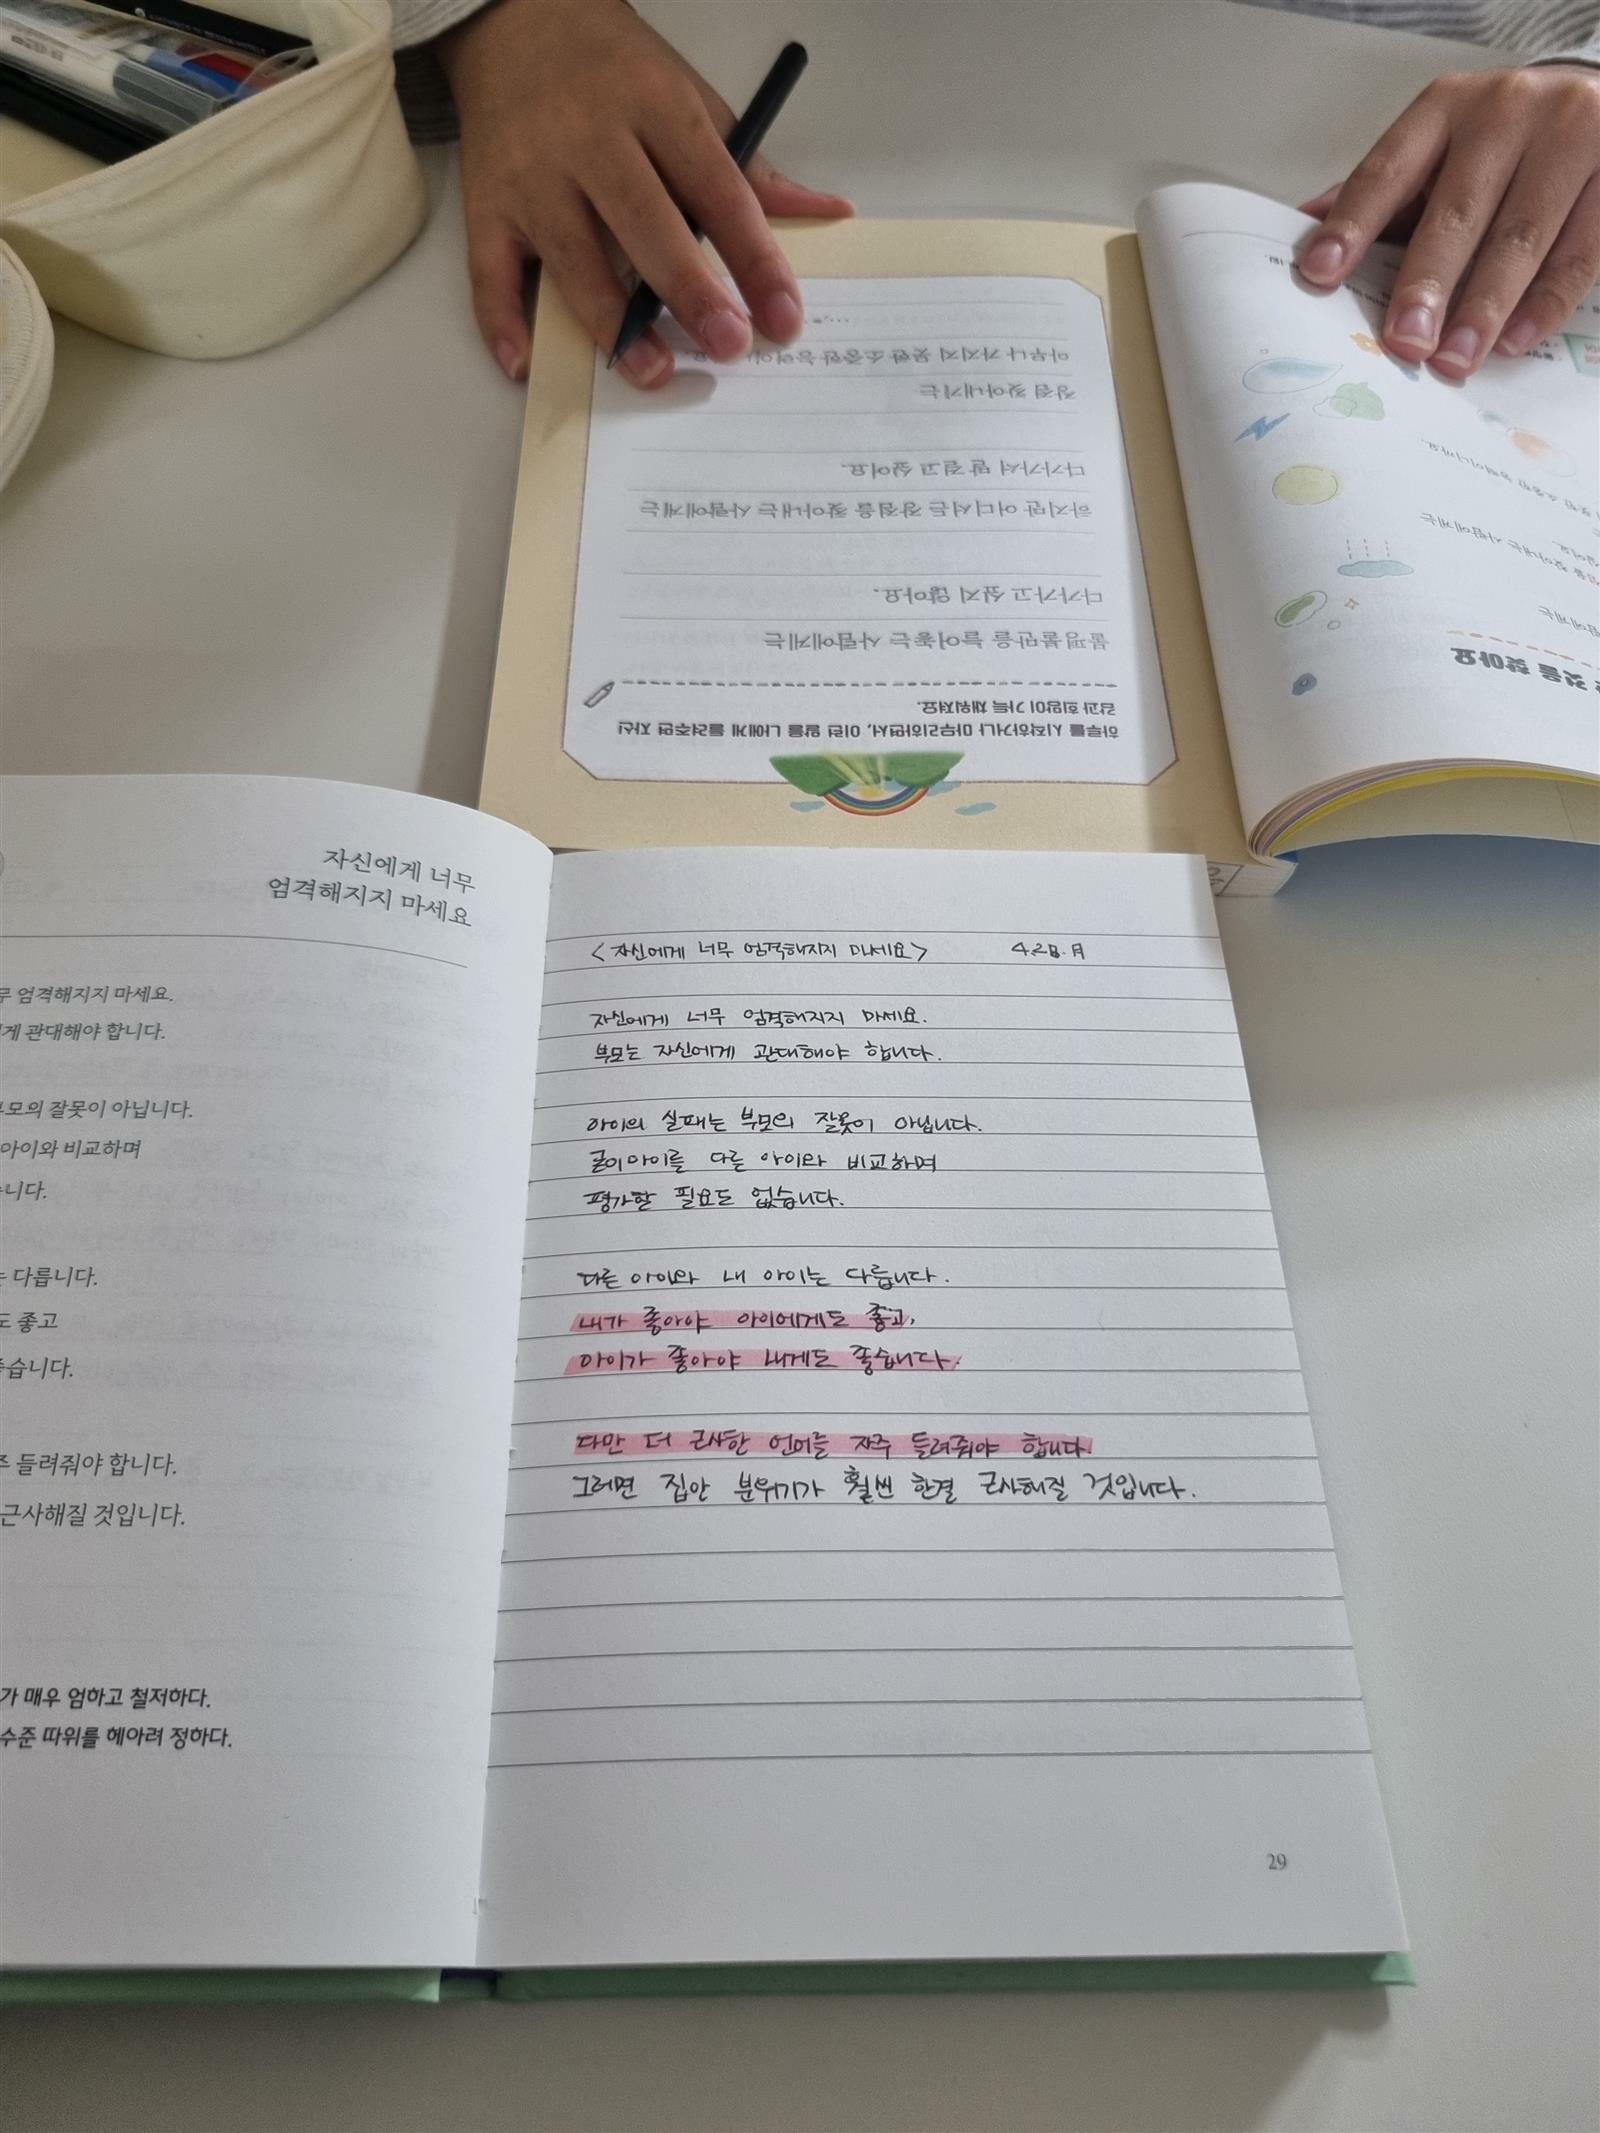 자신에게 너무
엄격해지지 마세요
엄격해지지 마세요.
게 관대해야 합니다.
부모의 잘못이 아닙니다.
아이와 비교하며
니다.
다릅니다.
도 좋고
좋습니다.
들려줘야 합니다.
근사해질 것입니다.
가 매우 엄하고 철저하다.
수준 따위를 헤아려 정하다.
<자신에게 너무 엄격해지지 마세요> 4.28. 月
자신에게 너무 엄격해지지 마세요.
부모는 자신에게 관대해야 합니다.
아이의 실패는 부모의 잘못이 아닙니다.
굳이 아이를 다른 아이와 비교하며
평가할 필요도 없습니다.
다른 아이와 내 아이는 다릅니다.
내가 좋아야 아이에게도 좋고,
아이가 좋아야 내게도 좋습니다.
다만 더 근사한 언어를 자주 들려줘야 합니다.
그러면 집안 분위기가 훨씬 한결 근사해질 것입니다.
29
하루를 시작하거나 마무리하면서, 이런 말을 나에게 들려주면 자신
감과 희망이 가득 채워져요.
불평불만을 늘어놓는 사람에게는
다가가고 싶지 않아요.
하지만 어디서든 장점을 찾아내는 사람에게는
다가가서 말 걸고 싶어요.
장점 찾아내기는
아무나 가지지 못한 소중한 능력이
것을 찾아요
찾아내는 사람에게는
소중한 능력이니까요.